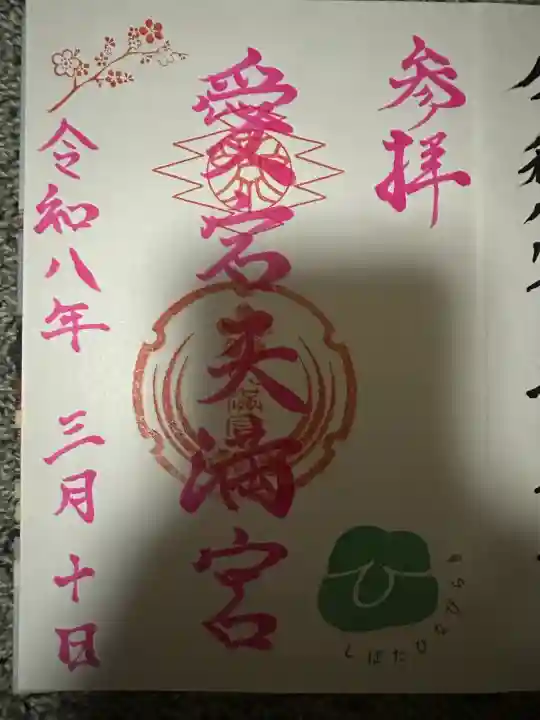 参拝
愛宕天満宮
令和八年 三月 十日
ひ
しばたひなめぐり